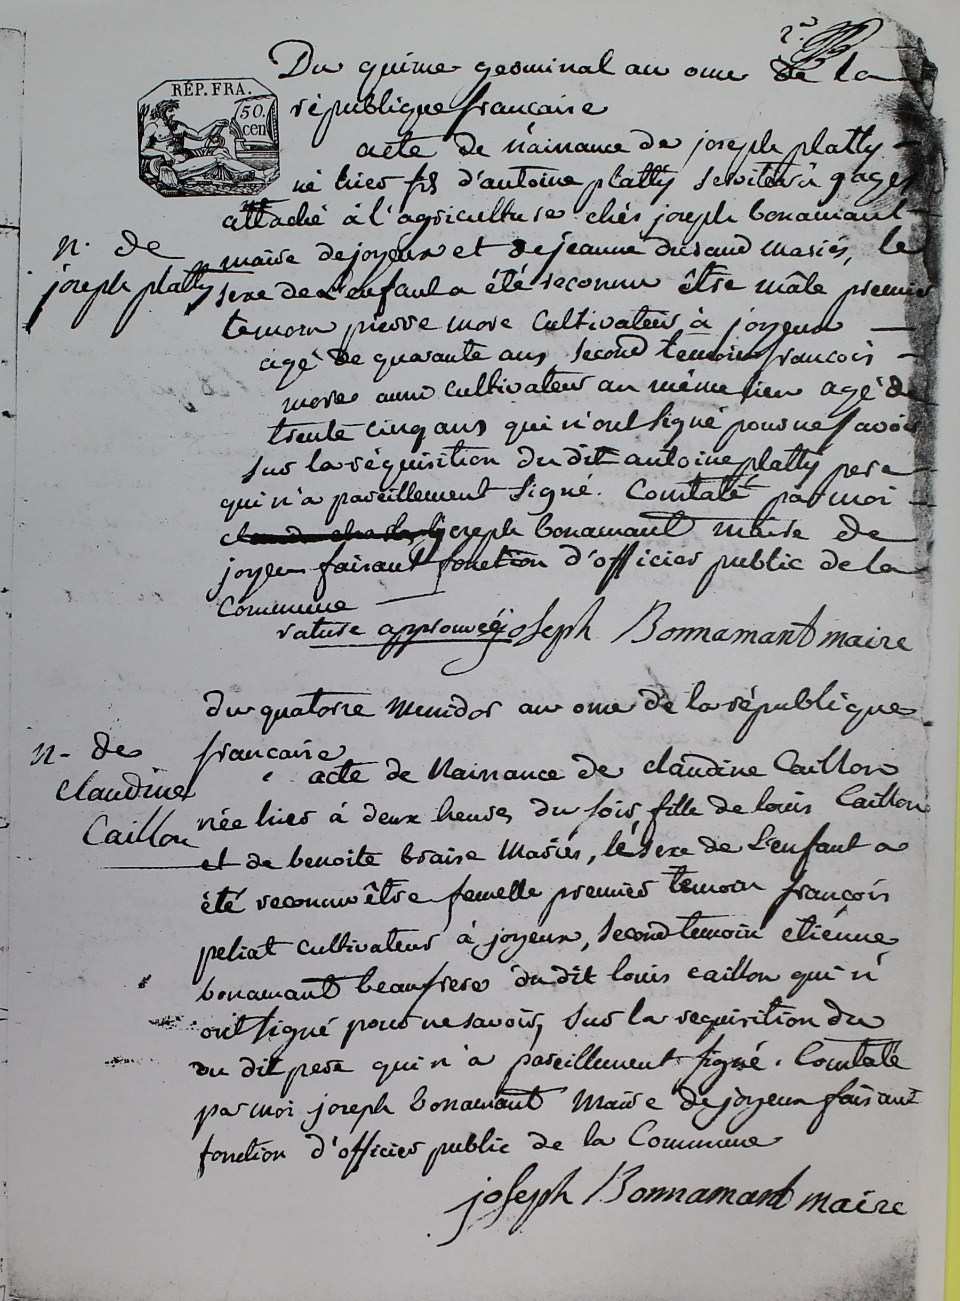 2.e
RÉP. FRA.
50.
cen
Du quinze germinal an onze de la
république francaise
acte de naissance de joseph platty
né hier fils d'antoine platty serviteur à gages
attaché à l'agriculture chés joseph bonamant
maire de joyeux et de jeanne durand mariés, le
n. de
joseph platty
sexe de l'enfant a été reconnu être mâle premier
temoin pierre more cultivateur à joyeux
agé de quarante ans second temoin francois
more aussi cultivateur au même lieu agé de
trente cinq ans qui n'ont signé pour ne savoir
sur la réquisition du dit antoine platty pere
qui n'a pareillement signé. Constaté par moi
joseph bonamant maire de
joyeux faisant fonction d'officier public de la
Commune
rature approuvée joseph Bonnamant maire
du quatorze messidor an onze de la république
francaise
n. de
claudine
Caillon
acte de Naissance de claudine Caillon
née hier à deux heures du soir, fille de louis Caillon
et de benoite braise Mariés, le sexe de l'enfant a
été reconnu être femelle premier temoin françois
peliat cultivateur à joyeux, second temoin etiénne
bonamant beaufrere du dit louis caillon qui n'
ont signé pour ne savoir, sur la requisition du
du dit pere qui n'a pareillement signé. Constaté
par moi joseph bonamant Maire de joyeux faisant
fonction d'officier public de la Commune
joseph Bonnamant maire